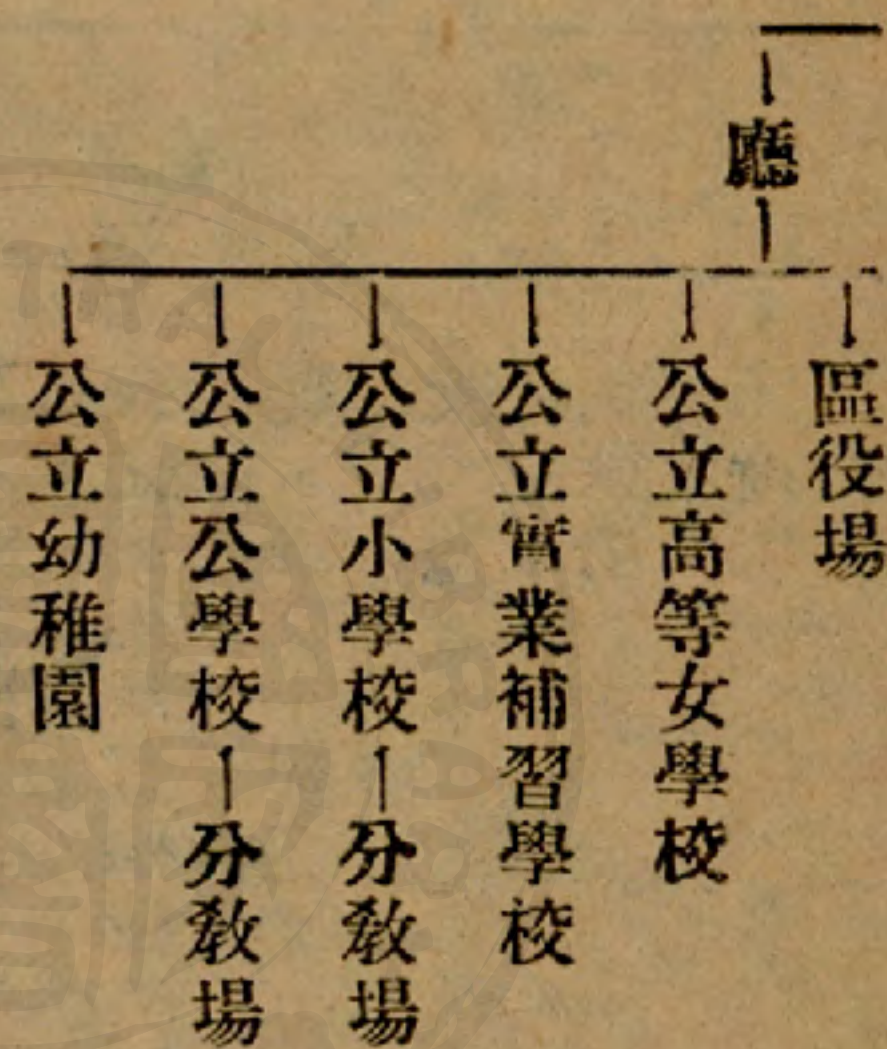 廳
區役場
公立高等女學校
公立實業補習學校
公立小學校―分敎場
公立公學校―分敎場
公立幼稚園